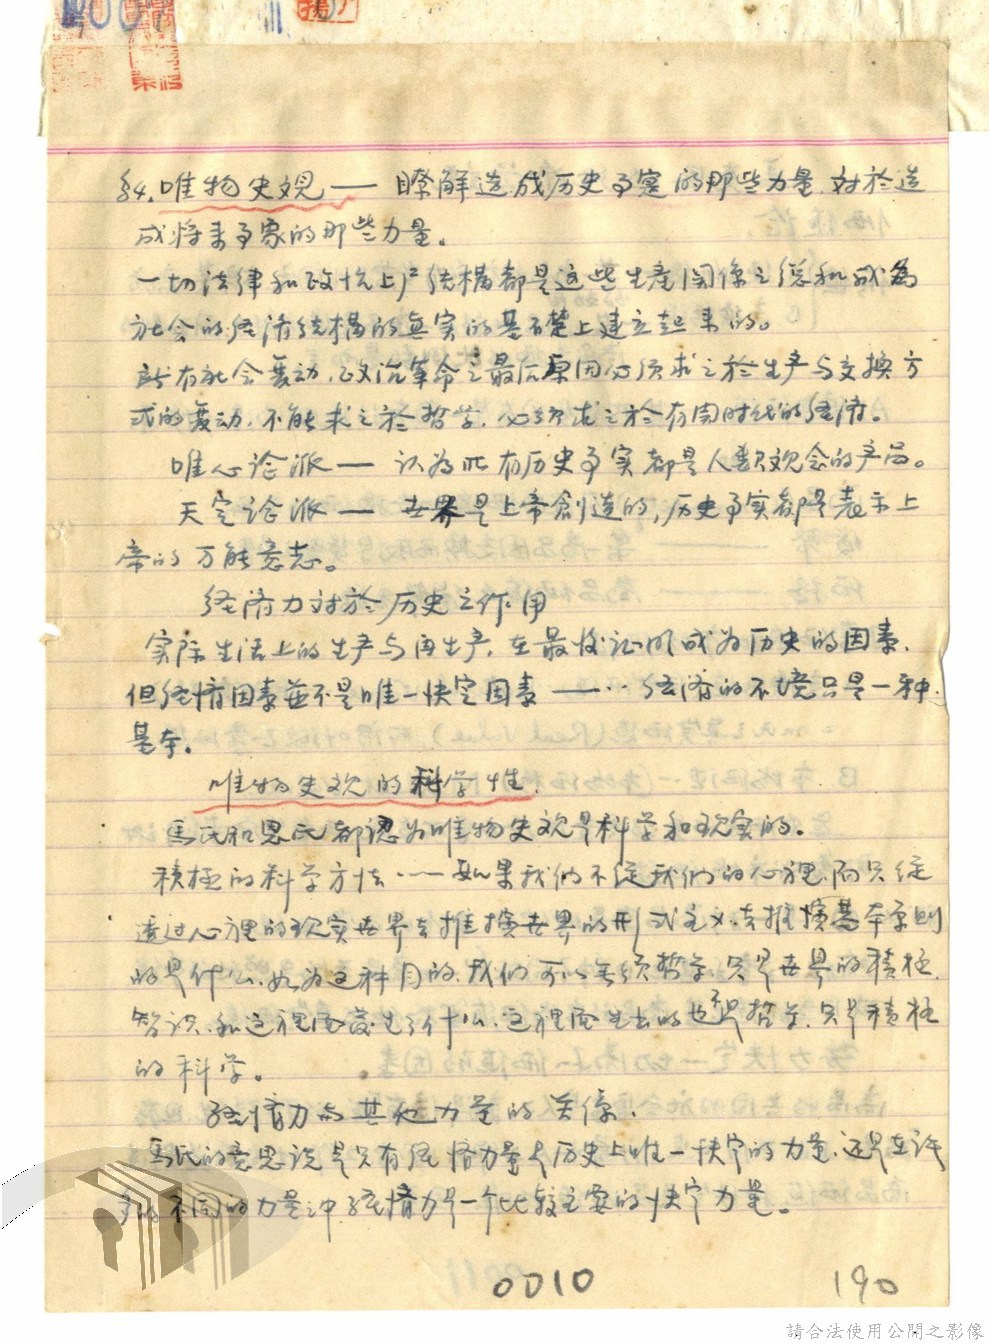 §4. 唯物史观 — 瞭解造成历史事实的那些力量 对於造
成将来事象的那些力量。
一切法律和政治上产结構都是这些生産関係之总和成為
社会的经济结構的真实的基礎上建立起来的。
所有社会变动,政治革命之最后原因必须求之於生产与交换方
式的变动,不能求之於哲学,必须求之於有関时代的经济。
唯心论派 — 认为所有历史事实都是人類观念的产品。
天定论派 — 世界是上帝創造的,历史事实都是表示上
帝的万能意志。
经济力对於历史之作用
实际生活上的生产与再生产,在最後证明成为历史的因素,
但经情因素並不是唯一决定因素 —‥ 经济的环境只是一种
基本。
唯物史观的科学性.
馬氏和恩氏都認为唯物史观是科学和现实的。
積極的科学方法 ‥— 如果我们不從我们的心裡,而只從
透过心裡的现实世界去推演世界的形式主义,去推演基本原则
的是什么,如为这种目的,我们可以無须哲学,只是世界的積極
智识,和这裡面發生了什么,这裡面生出的也不是哲学,只是積極
的科学。
经情力与其他力量的关係.
馬氏的意思说是只有经情力量是历史上唯一决定的力量,还是在许
多的不同的力量冲经情力是一个比较主要的决定力量。
0010
190
請合法使用公開之影像